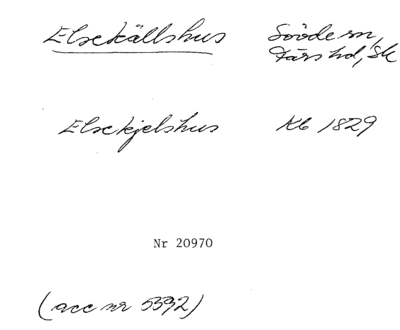 Elsekällshus Sövde sn,
Färs hd, Sk
Elsekjelshus Kb 1829
Nr 20970
(acc nr 5392)